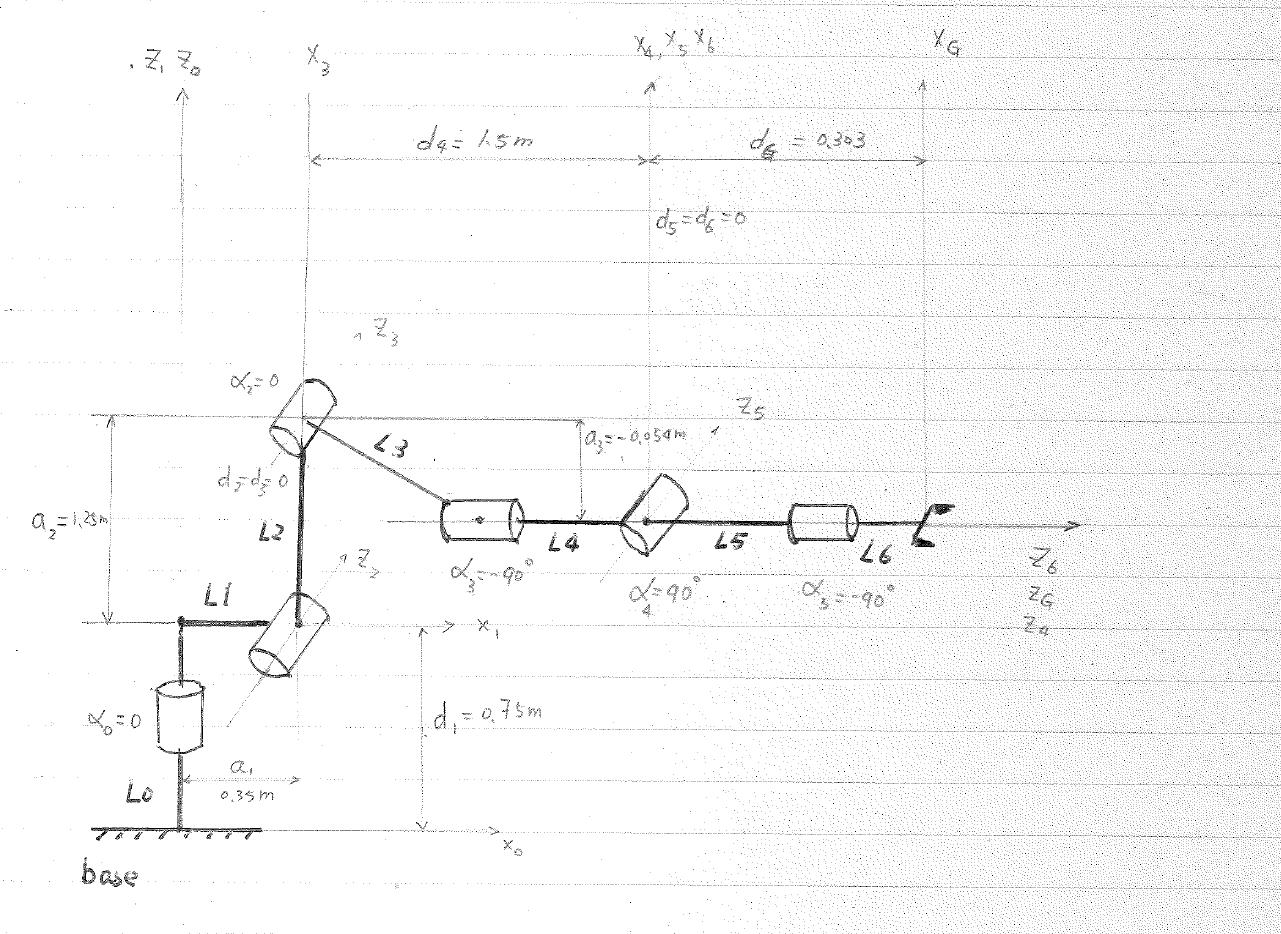 Z₁ Z₀
X₃
X₄, X₅ X₆
X_G
d₄ = 1.5m
d_G = 0.303
d₅=d₆=0
Z₃
α₂=0
Z₅
a₃=-0.054m
L3
d₂=d₃=0
a₂=1.25m
L2
L4
L5
L6
Z₂
α₃=-90°
α₄=90°
α₅=-90°
Z₆
Z_G
Z₄
L1
X₁
α₀=0
d₁= 0.75m
a₁
0.35m
L0
X₀
base